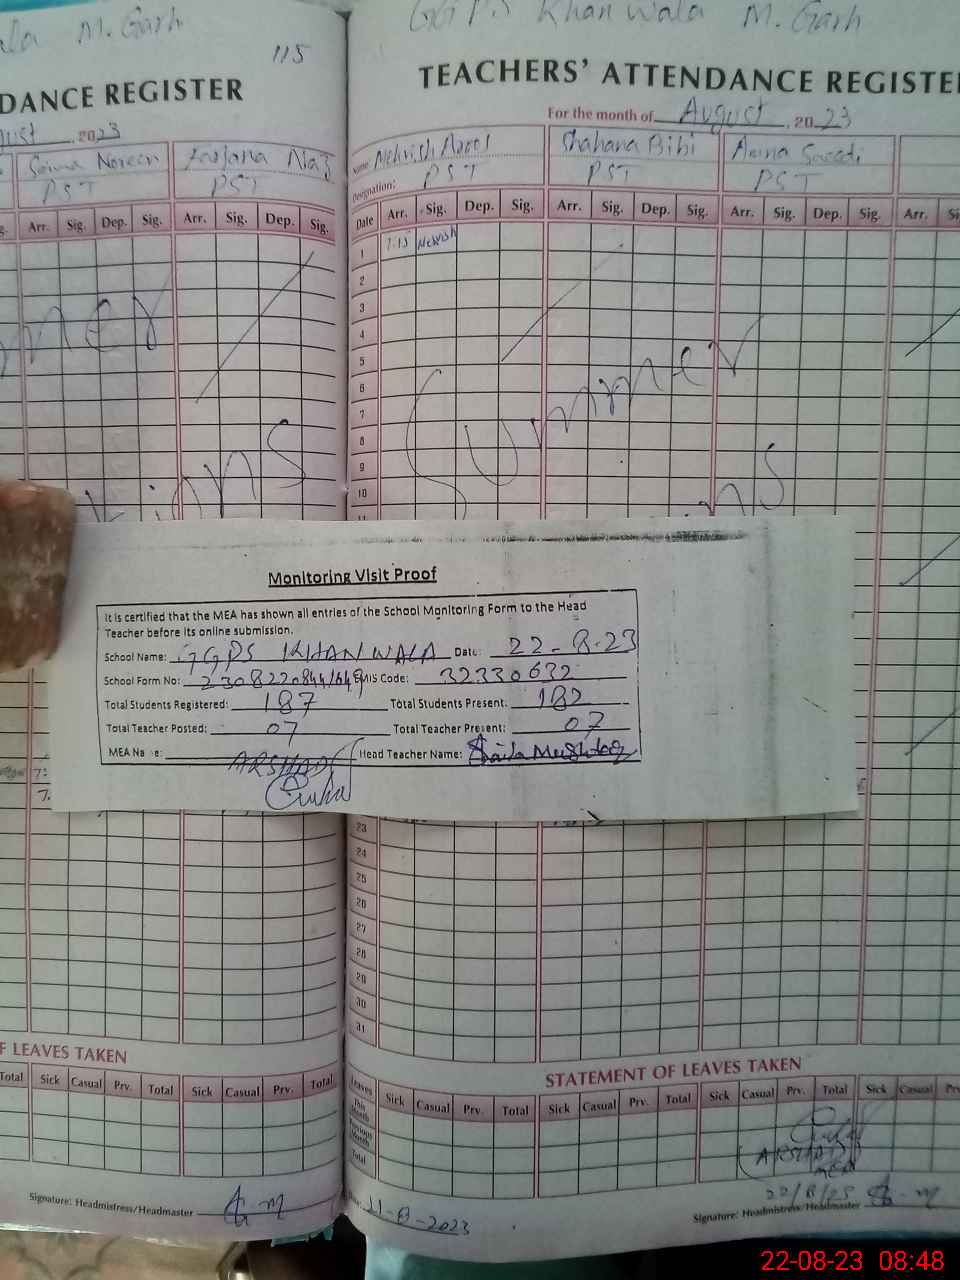 M. Garh
GGPS Khanwala M. Garh
115
DANCE REGISTER
TEACHERS' ATTENDANCE REGISTE
ust , 2023
For the month of August , 2023
Saima Noreen
PST
Farzana Naz
PST
Name: Mehvish
Designation: PST
Shahana Bibi
PST
PST
Arr. Sig. Dep. Sig. Arr. Sig. Dep. Sig.
Date Arr. Sig. Dep. Sig. Arr. Sig. Dep. Sig. Arr. Sig. Dep. Sig. Arr.
1 7:15 Mehvish
2
3
4
5
6
7
8
9
10
mer
Summer
ns
Monitoring Visit Proof
It is certified that the MEA has shown all entries of the School Monitoring Form to the Head
Teacher before its online submission.
School Name: GGPS KHANWALA Date: 22-8-23
School Form No: EMIS Code: 32330632
Total Students Registered: 187 Total Students Present: 182
Total Teacher Posted: 07 Total Teacher Present: 07
MEA Name: ARSHAD Head Teacher Name: Mushtaq
23
24
25
26
27
28
29
30
31
F LEAVES TAKEN
STATEMENT OF LEAVES TAKEN
Total Sick Casual Prv. Total Sick Casual Prv. Total
Leaves Sick Casual Prv. Total Sick Casual Prv. Total Sick Casual Prv. Total Sick Casual
This Month
Previous Month
Total
ARSHAD
MEA
Signature: Headmistress/Headmaster
11-8-2023
Signature: Headmistress/Headmaster
22-08-23 08:48